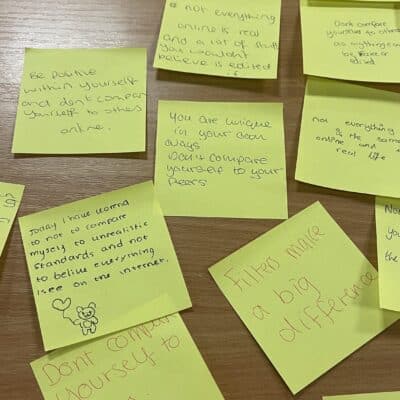 # not everything
online is real
and a lot of stuff
you wouldnt
believe is edited
Dont compare
yourselves to others
as anything can
be
edited
Be Positive
within yourself
and dont compare
yourself to others
online.
You are unique
in your own
ways
Don't compare
yourself to your
Peers
not everything
is the same
online and
real life
Today I have learnd
to not to compare
myself to unrealistic
Standards and not
to belive everything
I see on the internet.
Filters make
a big
difference
Dont compare
yourself to